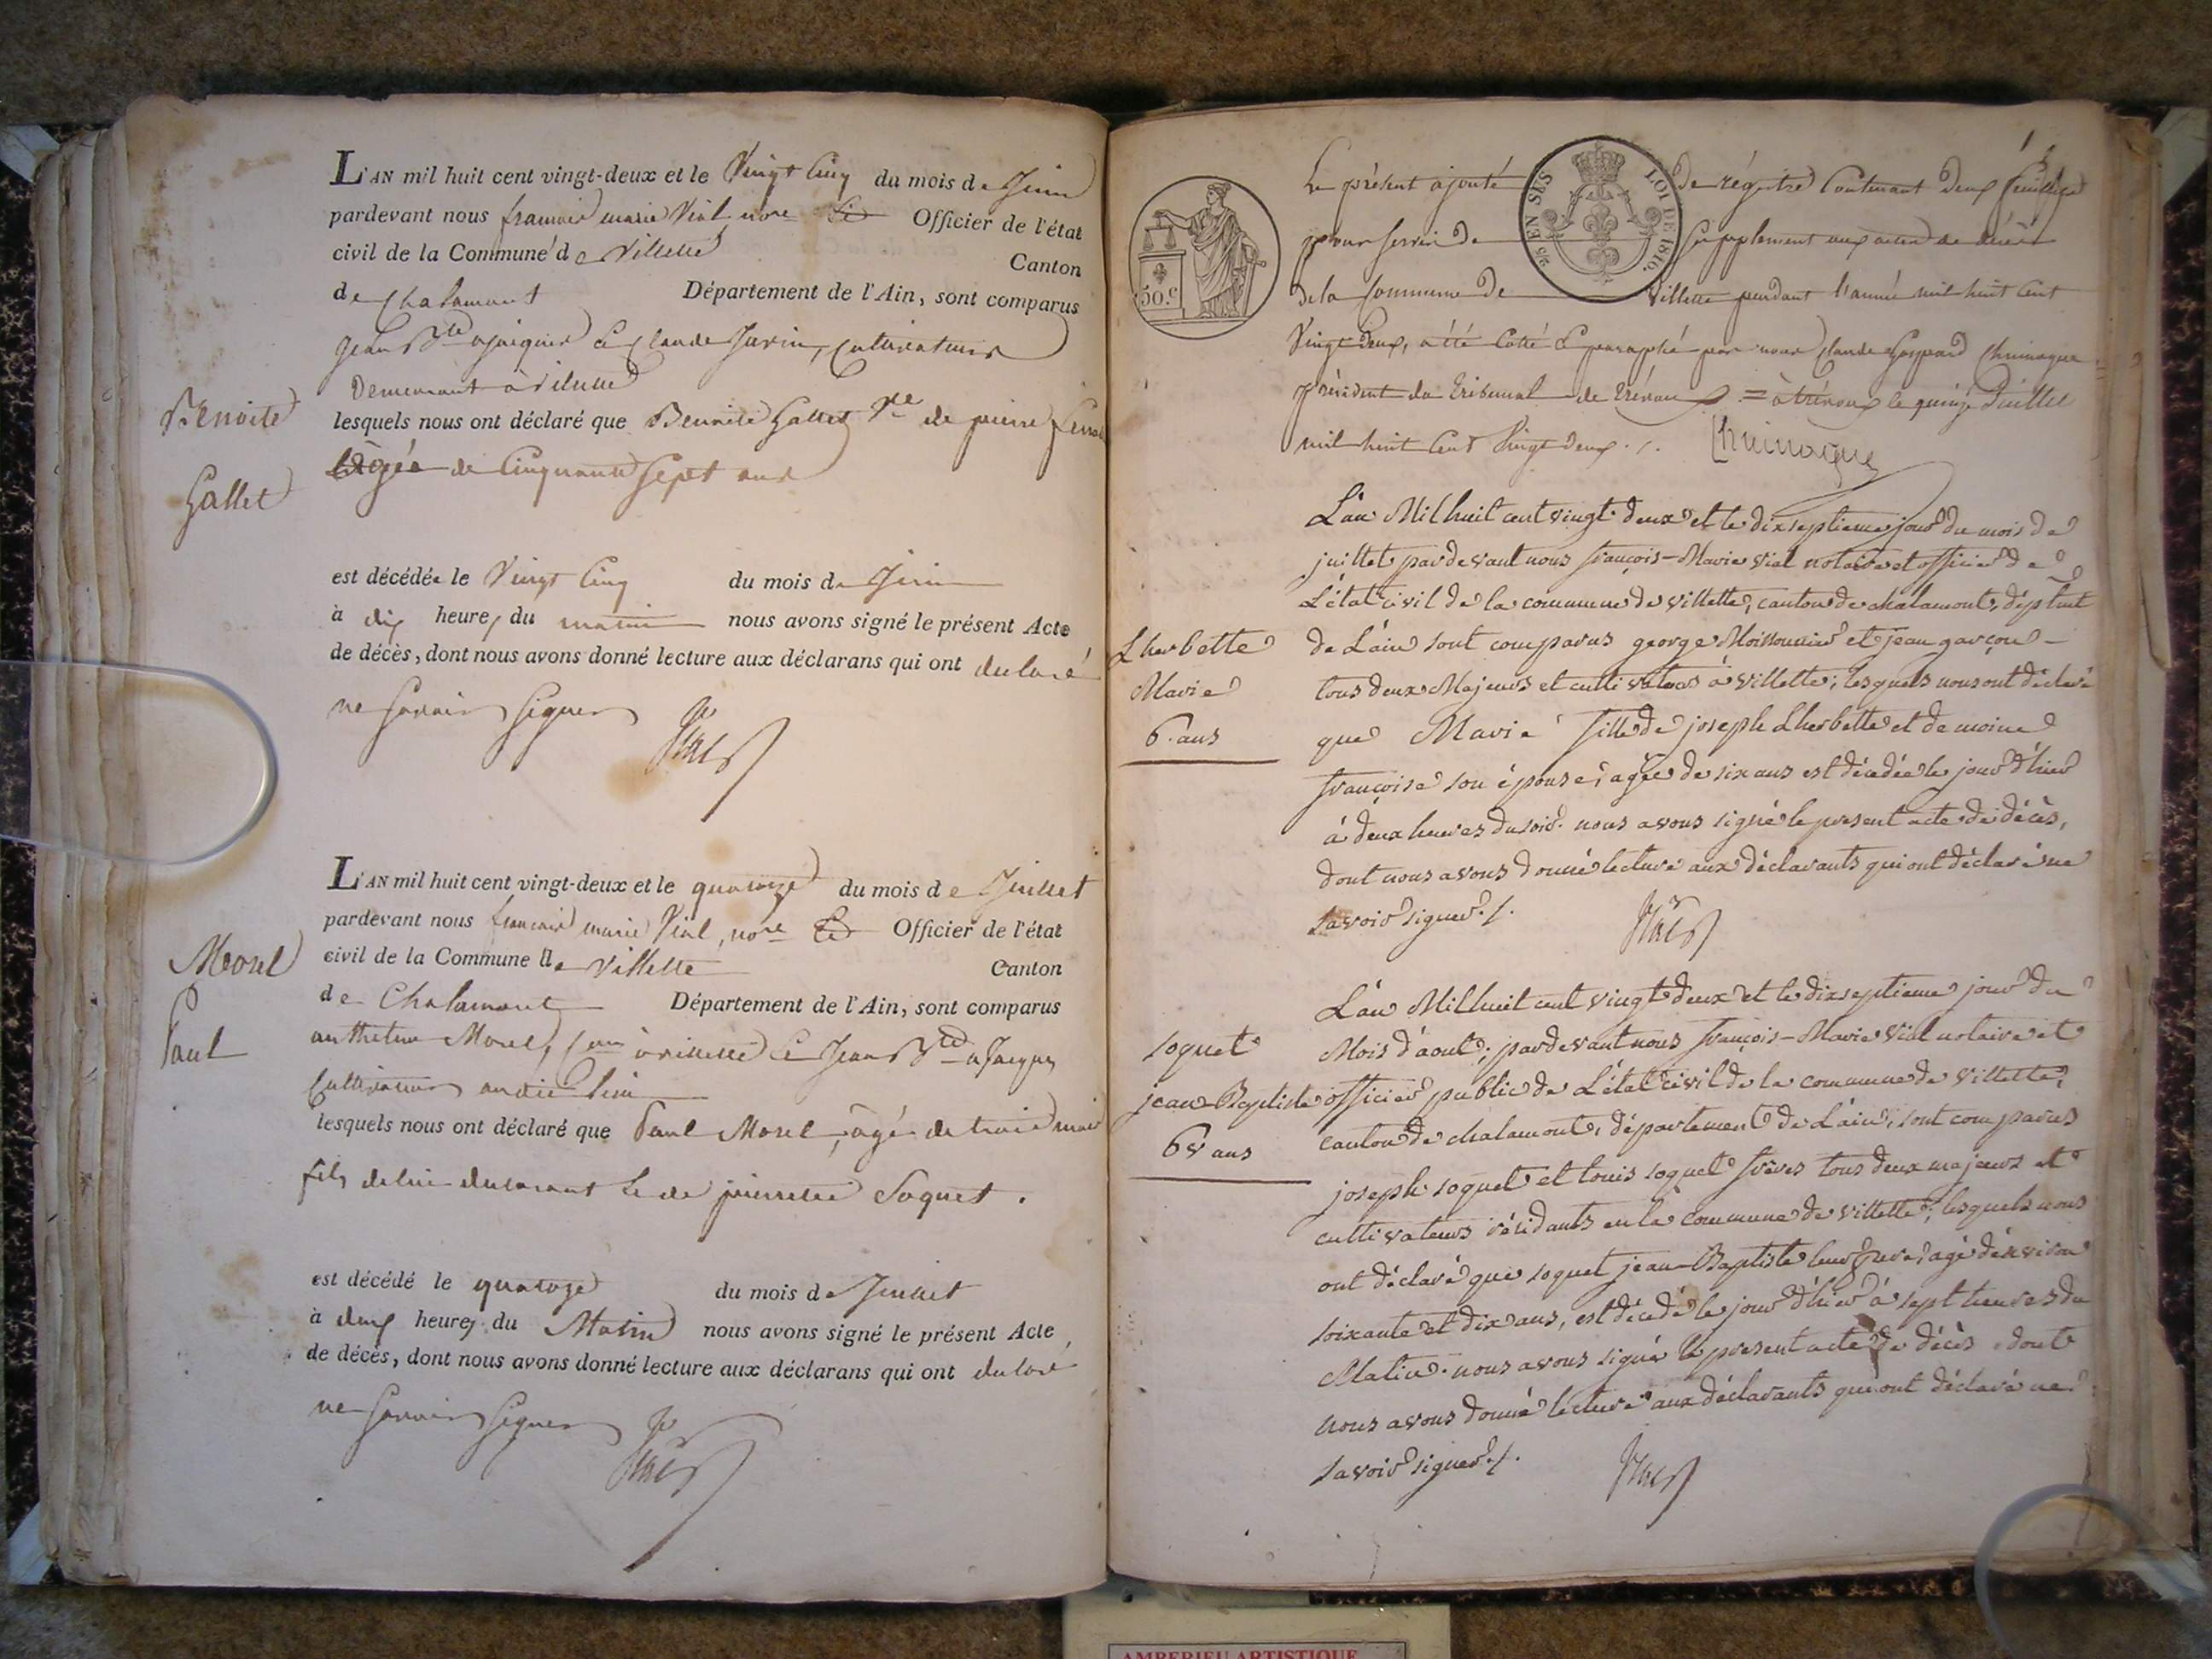 Benoite
Gallet
L'AN mil huit cent vingt-deux et le Vingt Cinq du mois de Juin
pardevant nous francois marie Vial, nore Officier de l'état
civil de la Commune de Villette Canton
de Chalamont Département de l'Ain, sont comparus
Jean Bte ajaques & Claude Juvin, cultivateurs
Demeurant à Villette
lesquels nous ont déclaré que Benoite Gallet Ve de pierre
âgée de Cinquante Sept ans
est décédée le Vingt Cinq du mois de Juin
à dix heures du matin nous avons signé le présent Acte
de décès, dont nous avons donné lecture aux déclarans qui ont déclaré
ne Savoir Signer
Vial
Morel
Paul
L'AN mil huit cent vingt-deux et le quatorze du mois de Juillet
pardevant nous francois marie Vial, nore Officier de l'état
civil de la Commune de Villette Canton
de Chalamont Département de l'Ain, sont comparus
Morel, à Villette & Jean Bte ajaques
Cultivateur audit lieu
lesquels nous ont déclaré que Paul Morel, âgé de trois mois
fils de lui déclarant & de pierrette Soquet.
est décédé le quatorze du mois de Juillet
à deux heures du Matin nous avons signé le présent Acte
de décès, dont nous avons donné lecture aux déclarans qui ont déclaré
ne Savoir Signer
Vial
50.c
25 EN SES LOI DE 1816.
Le présent ajouté de régistre Contenant Deux feuilles
pour Servir de Supplement aux actes de décès
de la Commune de Villette pendant l'année mil huit Cent
Vingt Deux, a été Cotté & paraphé par nous Claude Gaspard Chuinague
président du Tribunal de Trévoux = à trévoux le quinze Juillet
mil huit Cent Vingt Deux ./.
Chuinague
Lherbette
Marie
6. ans
L'an Mil huit cent vingt deux et le dix septieme jour du mois de
juillet pardevant nous françois-Marie Vial notaire et officier de
L'état civil de la commune de Villette, canton de chalamont, déptmt
de L'ain sont comparus george Moissonnier et jean garçon -
tous deux Majeurs et cultivateurs à Villette; lesquels nous ont déclaré
que Marie fille de joseph Lherbette et de moine
françoise son épouse, agée de six ans est décédée le jour d'hier
à deux heures du soir. nous avons signé le present acte de décès,
dont nous avons donné lecture aux déclarants qui ont déclaré ne
savoir signer ./.
Vial
soquet
jean-Baptiste
L'an Mil huit cent vingt deux et le dix septieme jour du
Mois d'aout, pardevant nous françois-Marie Vial notaire et
officier public de L'état civil de la commune de Villette,
canton de chalamont, département de L'ain, sont comparus
joseph soquet et louis soquet frères tous deux majeurs et
cultivateurs résidants en la commune de Villette; lesquels nous
ont déclaré que soquet jean-Baptiste leur agé d'environ
soixante et dix ans, est décédé le jour d'hier à sept heures du
Matin. nous avons signé le present acte de décès dont
nous avons donné lecture aux déclarants qui ont déclaré ne
savoir signer ./.
Vial
AMBERIEU ARTISTIQUE